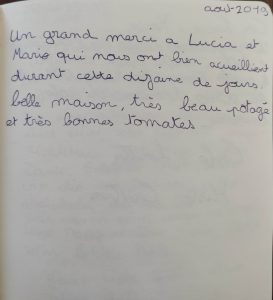 août-2019
Un grand merci a Lucia et
Mario qui nous ont bien acueillient
durant cette dizaine de jours.
belle maison, très beau potagé
et très bonnes tomates